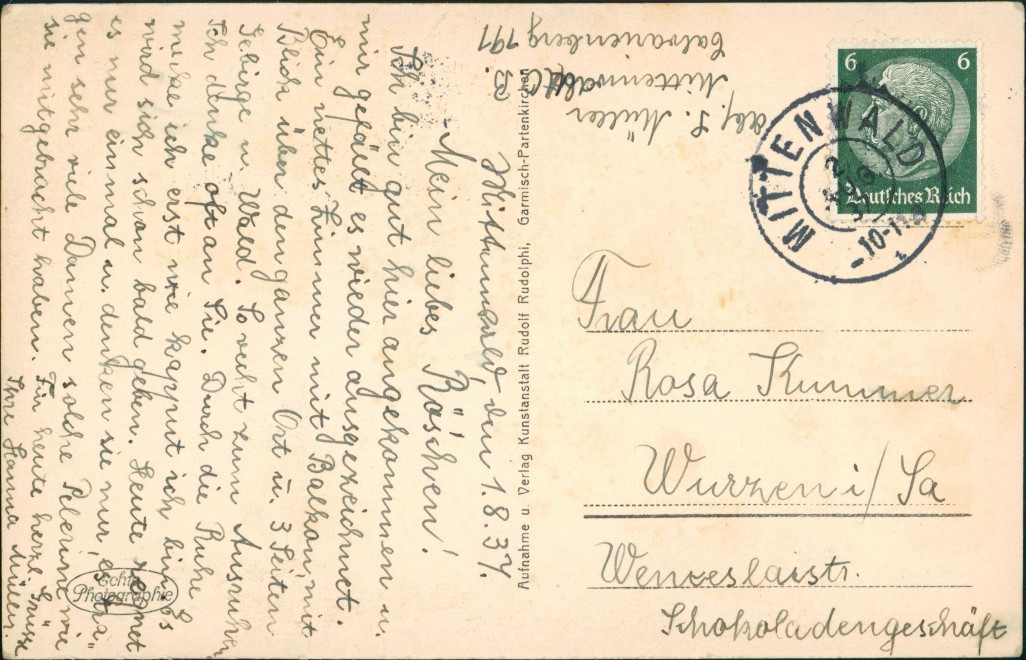 Mittenwald, den 1.8.37.
Mein liebes Röschen!
Ich bin gut hier angekommen u.
mir gefällt es wieder ausgezeichnet.
Ein nettes Zimmer mit Balkon, mit
Blick über den ganzen Ort u. 3 Seiten
Gebirge u. Wald. So recht zum Ausruhen.
Ich denke oft an Sie. Durch die Ruhe
merke ich erst wie kapput ich bin. Es
wird sich schon bald geben. Heute regnet
es nur einmal u. denken sie nur, es tra-
gen sehr viele Damen solche Pelerine wie
sie mitgebracht haben. Für heute herzl. Grüsse
Ihre Hanna Müller.
abs. S. Müller
Mittenwald O.B.
Calvarienberg 191
Aufnahme u. Verlag Kunstanstalt Rudolf Rudolphi, Garmisch-Partenkirchen
Echte
Photographie
6 6
Deutsches Reich
MITTENWALD
Frau
Rosa Kummer
Wurzen i/Sa
Wenzeslaistr.
Schokoladengeschäft